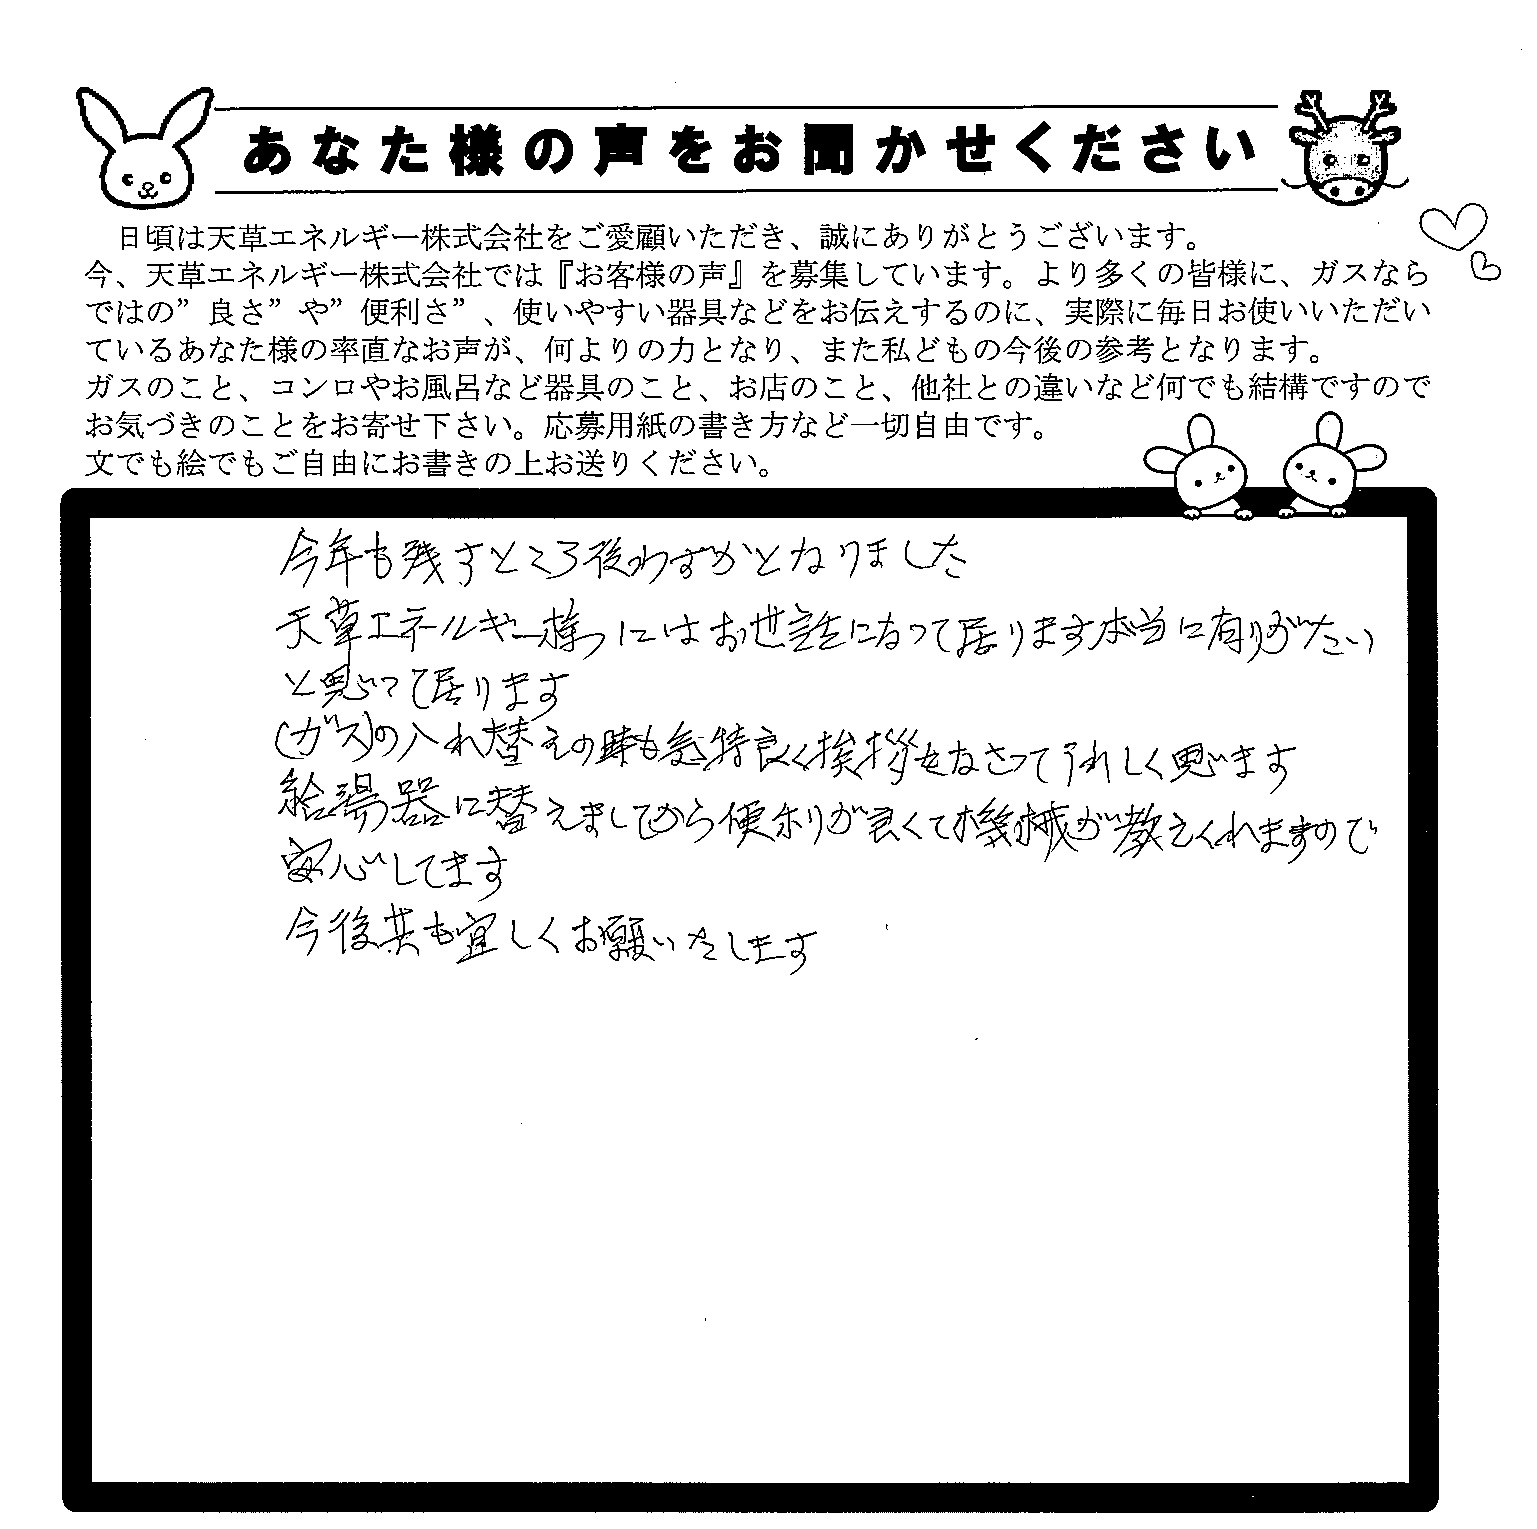 あなた様の声をお聞かせください
日頃は天草エネルギー株式会社をご愛顧いただき、誠にありがとうございます。
今、天草エネルギー株式会社では『お客様の声』を募集しています。より多くの皆様に、ガスなら
ではの”良さ”や”便利さ”、使いやすい器具などをお伝えするのに、実際に毎日お使いいただい
ているあなた様の率直なお声が、何よりの力となり、また私どもの今後の参考となります。
ガスのこと、コンロやお風呂など器具のこと、お店のこと、他社との違いなど何でも結構ですので
お気づきのことをお寄せ下さい。応募用紙の書き方など一切自由です。
文でも絵でもご自由にお書きの上お送りください。
今年も残すところ後わずかとなりました
天草エネルギー様にはお世話になって居ります本当に有りがたい
と思って居ります
(ガス)の入れ替えの時も気持良く挨拶をなさってうれしく思います
給湯器に替えましてから便利が良くて機械が教えくれますので
安心してます
今後共も宜しくお願いたします